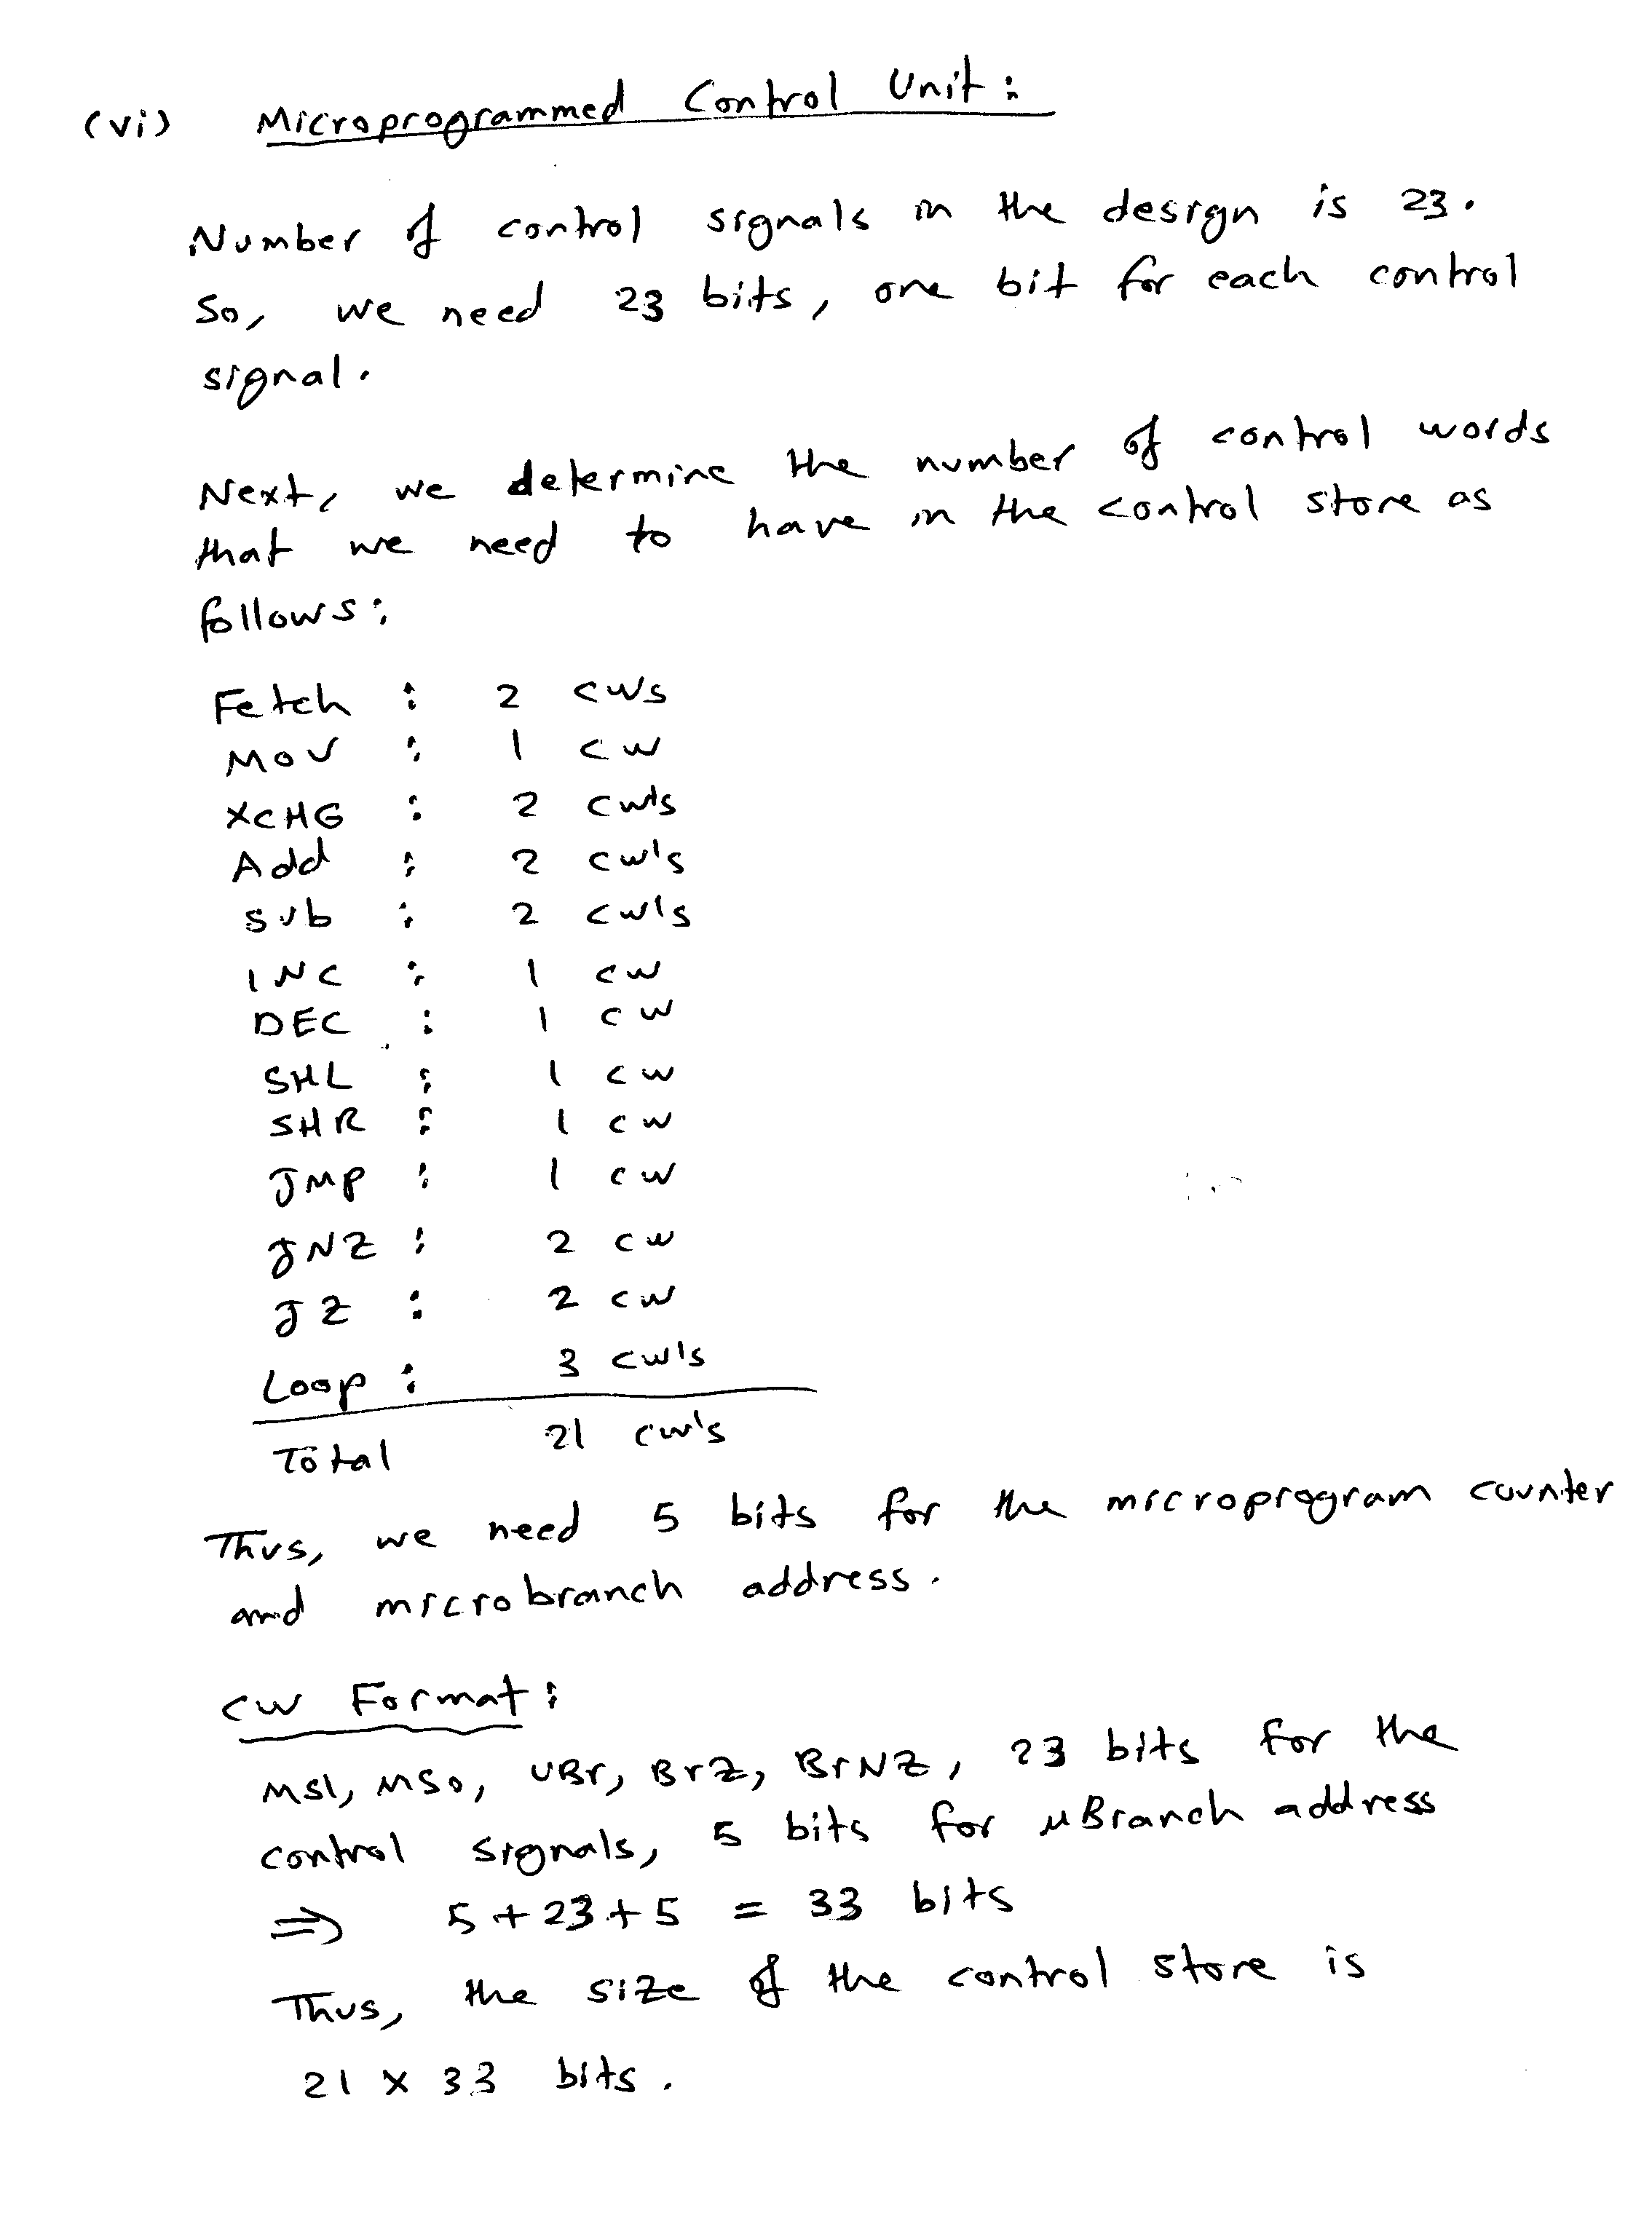 (vi) Microprogrammed Control Unit:
Number of control signals in the design is 23.
So, we need 23 bits, one bit for each control
signal.
Next, we determine the number of control words
that we need to have in the control store as
follows:
Fetch : 2 cws
MOV : 1 cw
XCHG : 2 cw's
Add : 2 cw's
sub : 2 cw's
INC : 1 cw
DEC : 1 cw
SHL : 1 cw
SHR : 1 cw
JMP : 1 cw
JNZ : 2 cw
JZ : 2 cw
Loop : 3 cw's
Total 21 cw's
Thus, we need 5 bits for the microprogram counter
and microbranch address.
CW Format:
MS1, MS0, UBr, BrZ, BrNZ, 23 bits for the
control signals, 5 bits for μBranch address
⇒ 5+23+5 = 33 bits
Thus, the size of the control store is
21 x 33 bits.